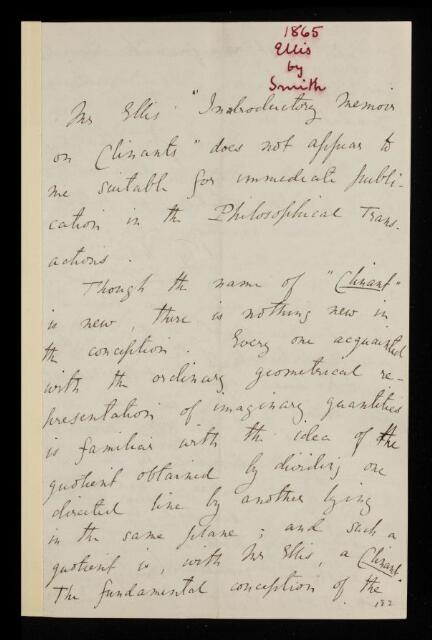 1865
Ellis
by
Smith
Mr Ellis' "Introductory Memoir
on Clinants" does not appear to
me suitable for immediate publi-
cation in the Philosophical Trans-
actions.
Though the name of "Clinant"
is new, there is nothing new in
the conception. Every one acquainted
with the ordinary geometrical re-
presentation of imaginary quantities
is familiar with the idea of the
quotient obtained by dividing one
directed line by another lying
in the same plane; and such a
quotient is, with Mr Ellis, a Clinant.
The fundamental conception of the
182